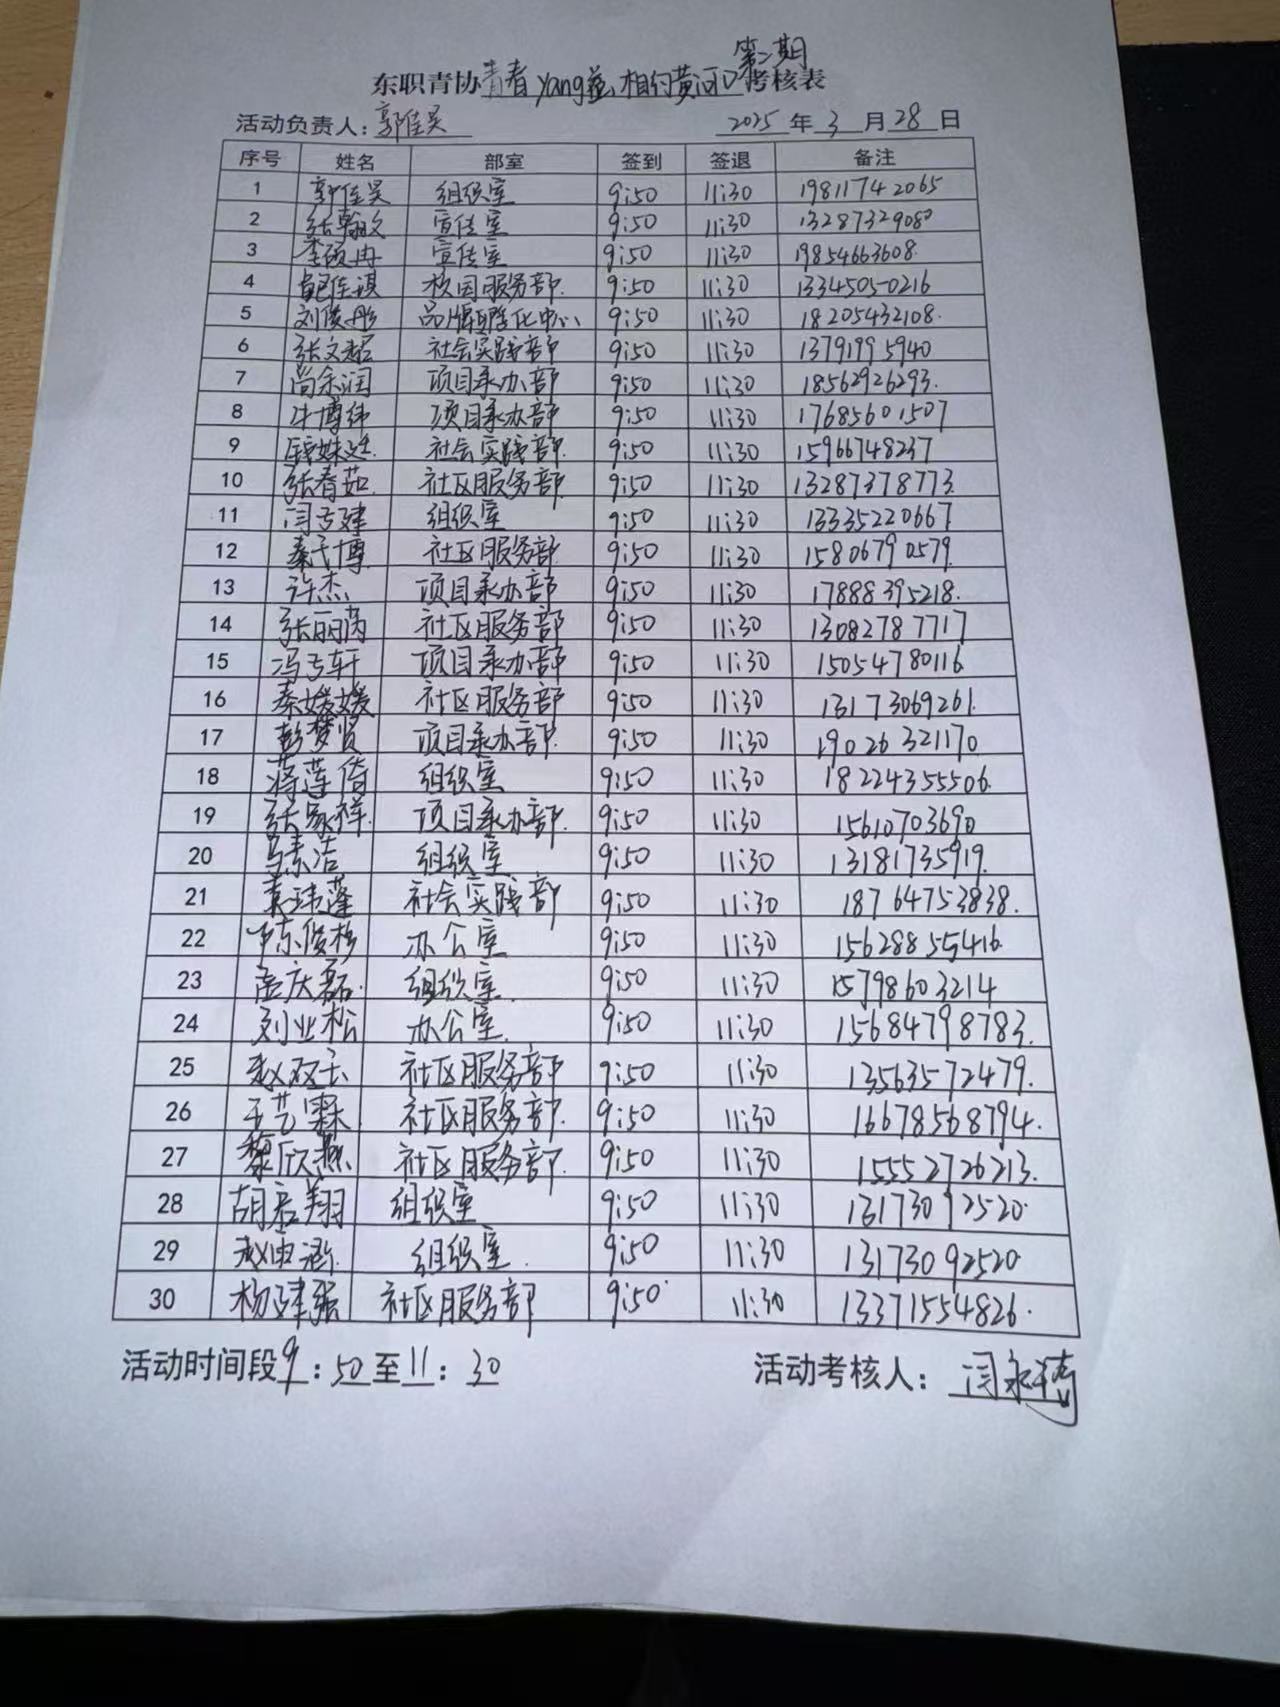 第二期
东职青协青春yang益,相约黄河口考核表
活动负责人:郭佳昊 2025年3月28日
序号 姓名 部室 签到 签退 备注
1 郭佳昊 组织室 9:50 11:30 19811742065
2 张翰文 宣传室 9:50 11:30 13287329080
3 李硕冉 宣传室 9:50 11:30 19854663608.
4 鲍佳琪 校园服务部. 9:50 11:30 1334505-0216
5 刘俊彤 品牌孵化中心 9:50 11:30 18205432108.
6 张文超 社会实践部 9:50 11:30 13791995940
7 尚余润 项目承办部 9:50 11:30 18562926293.
8 牛博纬 项目承办部 9:50 11:30 17685601507
9 社会实践部. 9:50 11:30 15966748237
10 张春茹. 社区服务部. 9:50 11:30 13287378773.
11 闫志建 组织室 9:50 11:30 13335220667
12 秦氏博 社区服务部 9:50 11:30 15806790579.
13 许杰 项目承办部 9:50 11:30 17888395218.
14 张丽芮 社区服务部 9:50 11:30 13082787717
15 冯弓轩 项目承办部 9:50 11:30 15054780116
16 秦媛媛 社区服务部 9:50 11:30 13173069261.
17 彭梦贤 项目承办部. 9:50 11:30 19026321170
18 蒋莲倚 组织室 9:50 11:30 18224355506.
19 张家祥. 项目承办部. 9:50 11:30 15610703690
20 马素洁 组织室 9:50 11:30 13181735919.
21 袁玮蓬 社会实践部 9:50 11:30 18764753838.
22 陈俊杉 办公室 9:50 11:30 15628855416.
23 孟庆磊. 组织室. 9:50 11:30 15798603214
24 刘业松 办公室. 9:50 11:30 15684798783.
25 赵双玉 社区服务部 9:50 11:30 13563572479.
26 王艺霖 社区服务部. 9:50 11:30 16678568794.
27 黎欣燕 社区服务部. 9:50 11:30 15552726213.
28 胡启翔 组织室 9:50 11:30 13173092520.
29 赵申涵. 组织室. 9:50 11:30 13173092520
30 杨建强 社区服务部 9:50 11:30 13371554826.
活动时间段9:50至11:30 活动考核人:闫永涛